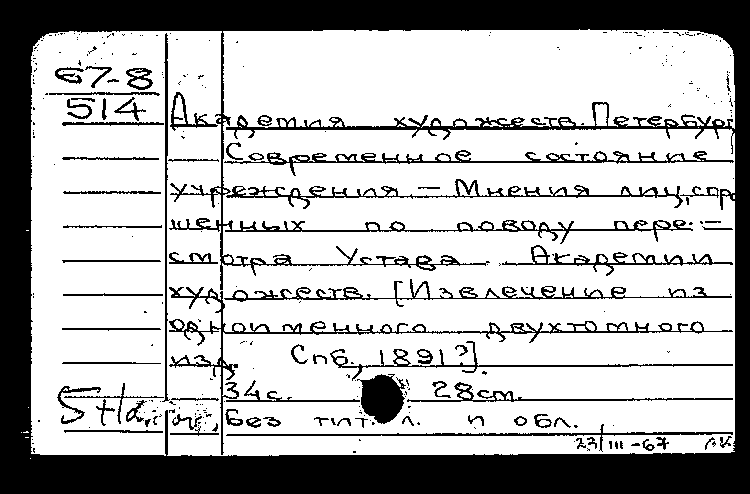 67-8
514
Академия художеств. Петербург
Современное состояние
учреждения – Мнения лиц, спро
шенных по поводу пере-
смотра Устава Академии
художеств. [Извлечение из
одноименного двухтомного
изд. Спб, 1891?].
34с. 28см.
Без тит. л. и обл.
23/III-67